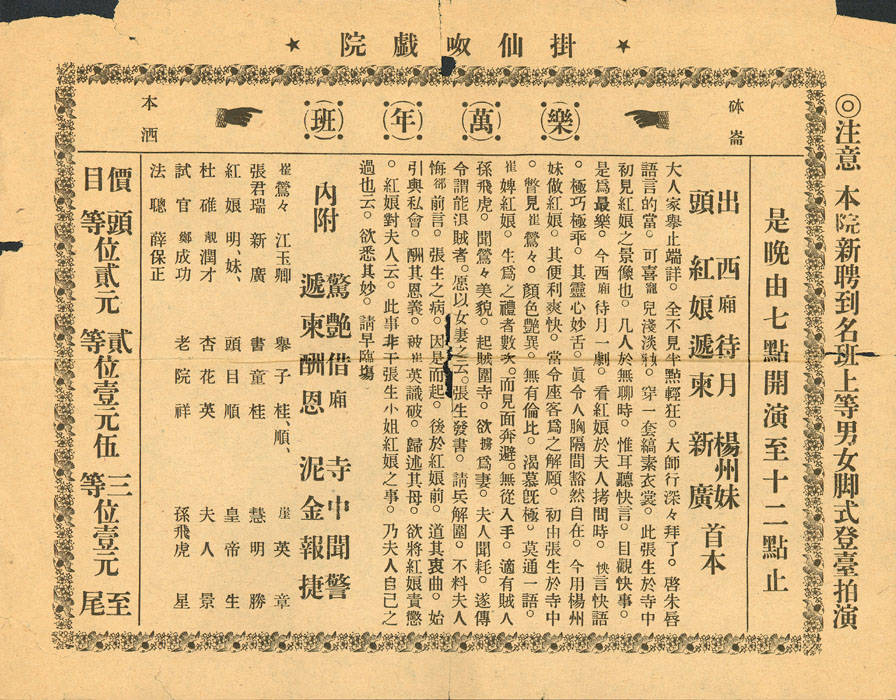 ★ 院戲呶仙掛 ★
◎注意 本院新聘到名班上等男女脚式登臺拍演
砵崙
樂萬年班
本酒
是晚由七點開演至十二點止
出頭 西廂待月 紅娘遞柬 楊州妹 新廣 首本
大人家舉止端詳。全不見半點輕狂。大師行深々拜了。啓朱唇
語言的當。可喜龐兒淺淡粧。穿一套縞素衣裳。此張生於寺中
初見紅娘之景像也。凡人於無聊時。惟耳聽快言。目觀快事。
是爲最樂。今西廂待月一劇。看紅娘於夫人拷問時。快言快語
。極巧極乖。其靈心妙舌。眞令人胸隔間豁然自在。今用楊州
妹做紅娘。其便利爽快。當令座客爲之解頤。初由張生於寺中
。瞥見崔鶯々。顏色艷異。無有倫比。渴慕旣極。莫通一語。
崔婢紅娘。生爲之禮者數次。而見面奔避。無從入手。適有賊人
孫飛虎。聞鶯々美貌。起賊圍寺。欲擄爲妻。夫人聞耗。遂傳
令謂能退賊者。愿以女妻之云。張生發書。請兵解圍。不料夫人
悔卻前言。張生之病。因是而起。後於紅娘前。道其衷曲。始
引與私會。酬其恩義。被崔英識破。歸述其母。欲將紅娘責懲
。紅娘對夫人云。此事非干張生小姐紅娘之事。乃夫人自己之
過也云。欲悉其妙。請早臨塲
內附 驚艷借廂 寺中聞警
遞柬酬恩 泥金報捷
崔鶯々 江玉卿 舉子 桂、順、 崔英 章
張君瑞 新廣 書童 桂 慧明 勝
紅娘 明、妹、 頭目 順 皇帝 生
杜確 靚潤才 杏花 英 夫人 景
試官 鄭成功 老院 祥 孫飛虎 星
法聰 薛保正
價目 頭等位貳元 貳等位壹元伍 三等位壹元 至尾